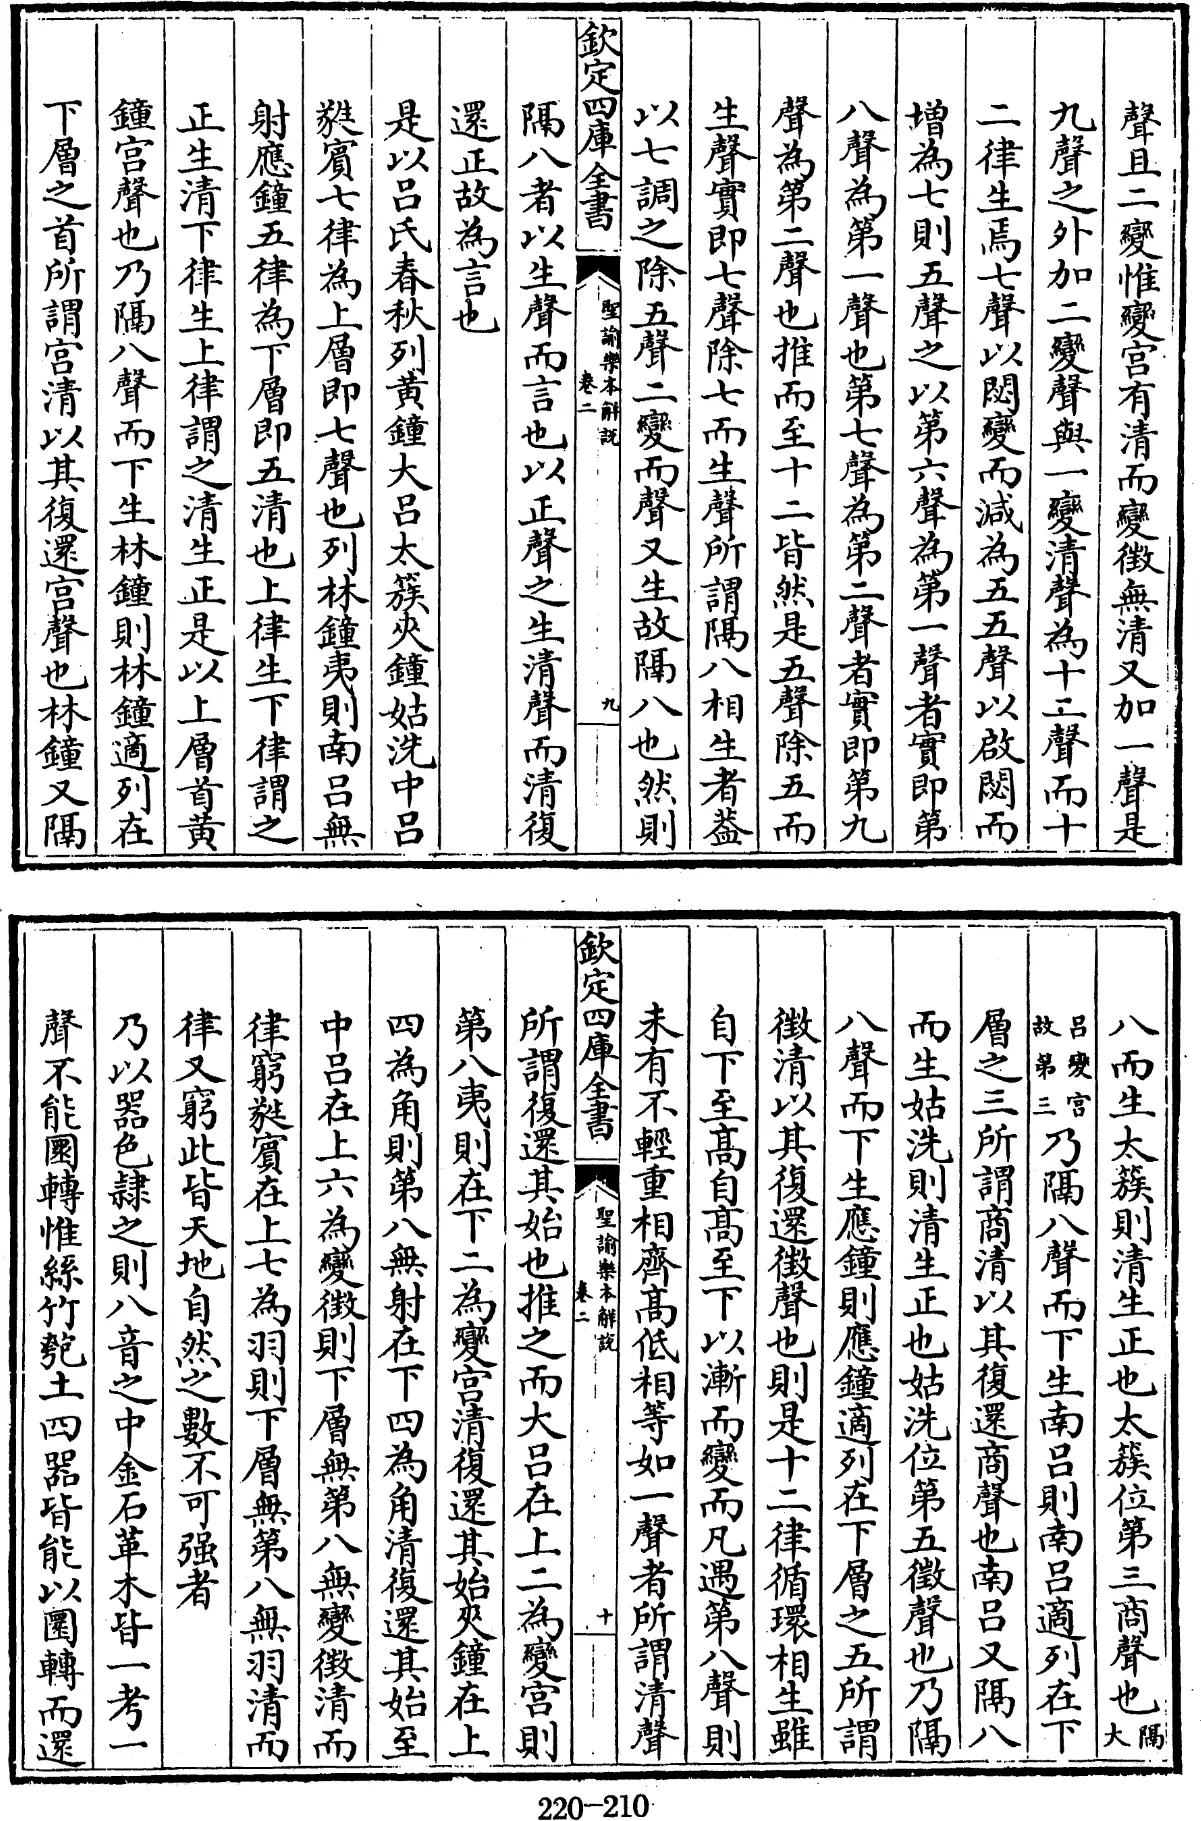 聲且二變惟變宮有清而變徴無清又加一聲是
九聲之外加二變聲與一變清聲為十二聲而十
二律生焉七聲以閟變而減為五五聲以啟閟而
增為七則五聲之以第六聲為第一聲者實即第
八聲為第一聲也第七聲為第二聲者實即第九
聲為第二聲也推而至十二皆然是五聲除五而
生聲實即七聲除七而生聲所謂隔八相生者葢
以七調之除五聲二變而聲又生故隔八也然則
欽定四庫全書
聖諭樂本解說
卷二
九
隔八者以生聲而言也以正聲之生清聲而清復
還正故為言也
是以呂氏春秋列黄鐘大呂太簇夾鐘姑洗中呂
蕤賓七律為上層即七聲也列林鐘夷則南呂無
射應鐘五律為下層即五清也上律生下律謂之
正生清下律生上律謂之清生正是以上層首黄
鐘宮聲也乃隔八聲而下生林鐘則林鐘適列在
下層之首所謂宮清以其復還宮聲也林鐘又隔
八而生太簇則清生正也太簇位第三商聲也隔大
呂變宮故第三乃隔八聲而下生南呂則南呂適列在下
層之三所謂商清以其復還商聲也南呂又隔八
而生姑洗則清生正也姑洗位第五徴聲也乃隔
八聲而下生應鐘則應鐘適列在下層之五所謂
徴清以其復還徴聲也則是十二律循環相生雖
自下至高自高至下以漸而變而凡遇第八聲則
未有不輕重相齊高低相等如一聲者所謂清聲
欽定四庫全書
聖諭樂本解說
卷二
十
所謂復還其始也推之而大呂在上二為變宮則
第八夷則在下二為變宮清復還其始夾鐘在上
四為角則第八無射在下四為角清復還其始至
中呂在上六為變徴則下層無第八無變徴清而
律窮蕤賓在上七為羽則下層無第八無羽清而
律又窮此皆天地自然之數不可强者
乃以器色隷之則八音之中金石革木皆一考一
聲不能圜轉惟絲竹匏土四器皆能以圜轉而還
220-210